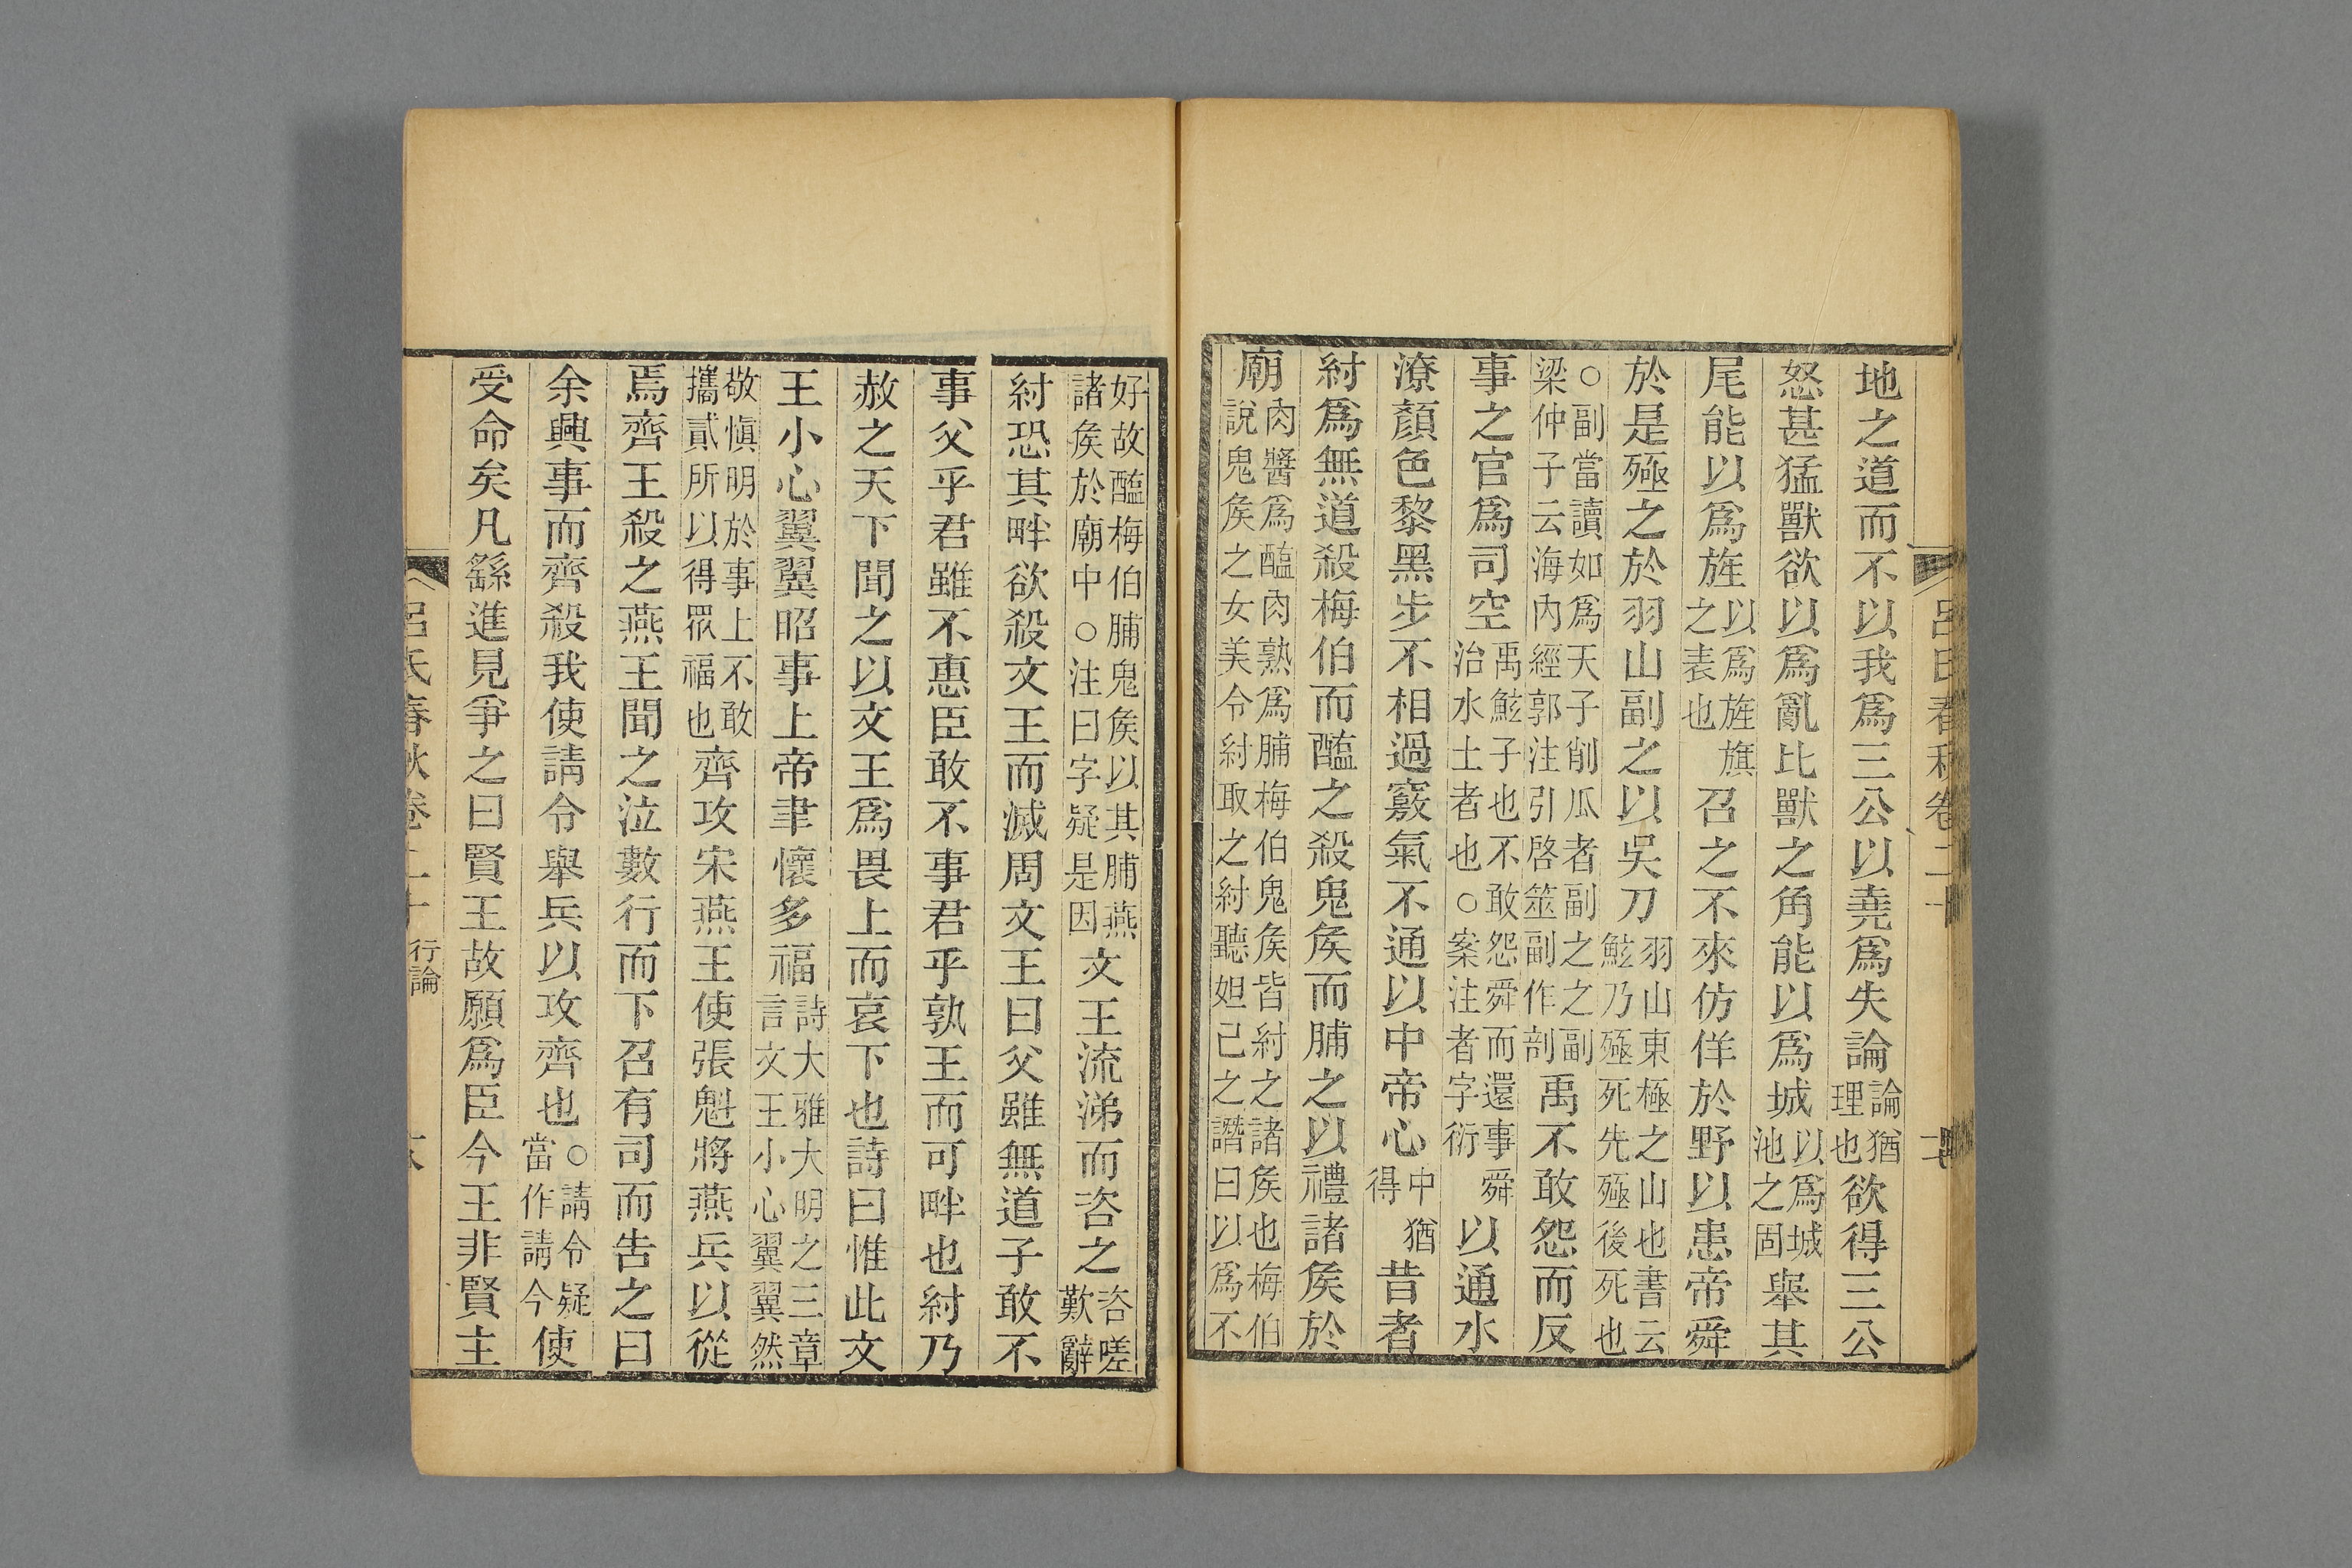 地之道而不以我爲三公以堯爲失論論猶理也欲得三公
怒甚猛獸欲以爲亂比獸之角能以爲城以爲城池之固舉其
尾能以爲旌以爲旌旗之表也召之不來仿佯於野以患帝舜
於是殛之於羽山副之以吳刀羽山東極之山也書云鮌乃殛死先殛後死也
○副當讀如爲天子削瓜者副之之副梁仲子云海內經郭注引啓筮副作剖禹不敢怨而反
事之官爲司空禹鮌子也不敢怨舜而還事舜治水土者也○案注者字衍以通水
潦顏色黎黑步不相過竅氣不通以中帝心中猶得昔者
紂爲無道殺梅伯而醢之殺鬼矦而脯之以禮諸矦於
廟肉醬爲醢肉熟爲脯梅伯鬼矦皆紂之諸矦也梅伯說鬼矦之女美令紂取之紂聽妲己之譖曰以爲不
好故醢梅伯脯鬼矦以其脯燕諸矦於廟中○注曰字疑是因文王流涕而咨之咨嗟歎辭
紂恐其畔欲殺文王而滅周文王曰父雖無道子敢不
事父乎君雖不惠臣敢不事君乎孰王而可畔也紂乃
赦之天下聞之以文王爲畏上而哀下也詩曰惟此文
王小心翼翼昭事上帝聿懷多福詩大雅大明之三章言文王小心翼翼然
敬愼明於事上不敢攜貳所以得眾福也齊攻宋燕王使張魁將燕兵以從
焉齊王殺之燕王聞之泣數行而下召有司而告之曰
余興事而齊殺我使請令舉兵以攻齊也○請令疑當作請今使
受命矣凡繇進見爭之曰賢王故願爲臣今王非賢主
呂氏春秋卷二十 行論